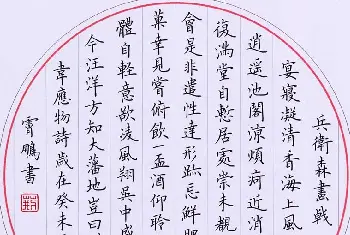 兵衛森畫戟
宴寢凝清香海上風
逍遥池閣涼煩疴近消
復滿堂自慙居處崇未覩
會是非遣性達形跡忘鮮肥
菓幸見嘗俯飲一盃酒仰聆
體自輕意欲淩風翔吳中盛
今汪洋方知大藩地豈曰
韋應物詩歲在癸未
霄鵬書